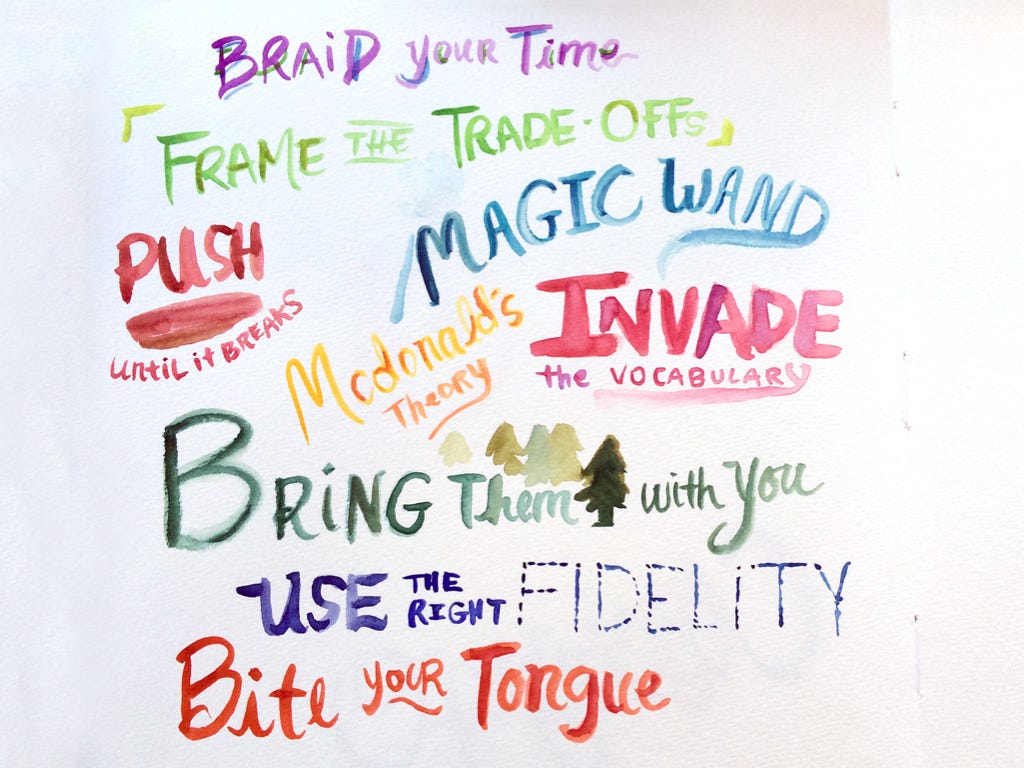 BRAiD your Time
「FRAME THE TRADE-OFFs」
MAGIC WAND
PUSH
until it BREAKS
Mcdonald's
Theory
INVADE
the VOCABULARY
BRiNG Them with you
USE THE RIGHT FIDELiTY
Bite your Tongue